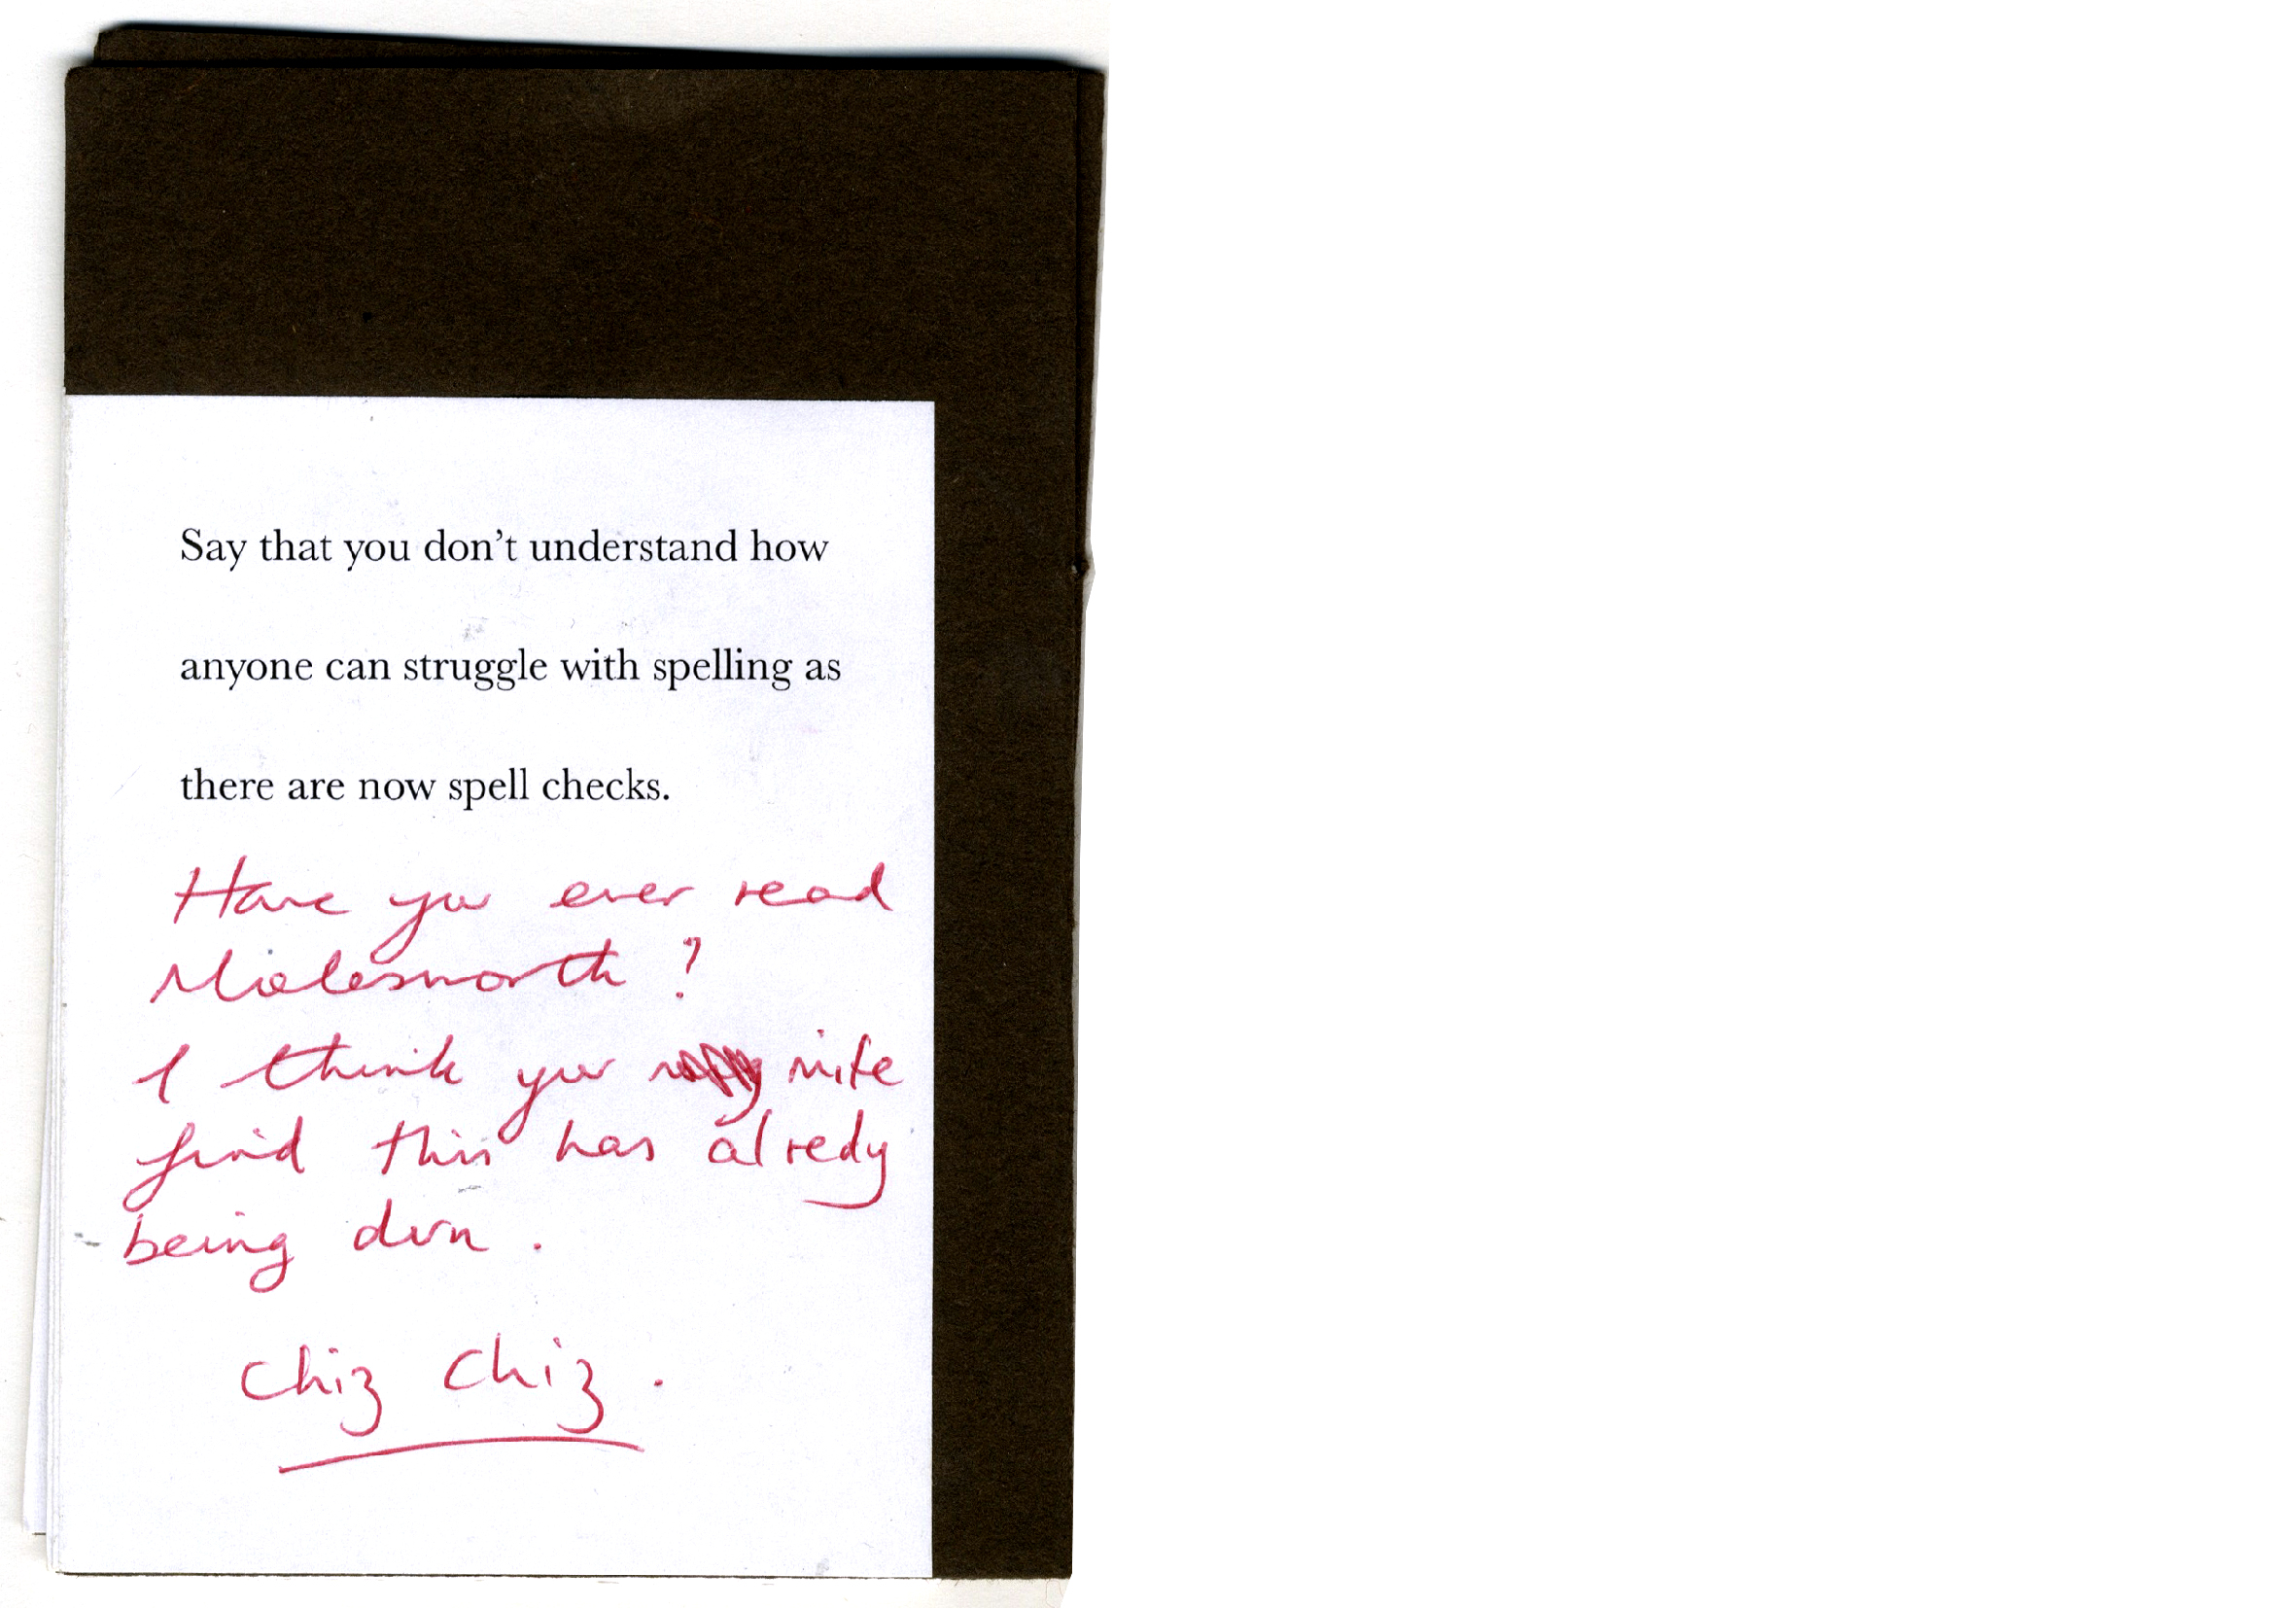 Say that you don't understand how
anyone can struggle with spelling as
there are now spell checks.
Have you ever read
Molesworth?
I think you mite
find this has alredy
being dun.
Chiz Chiz.